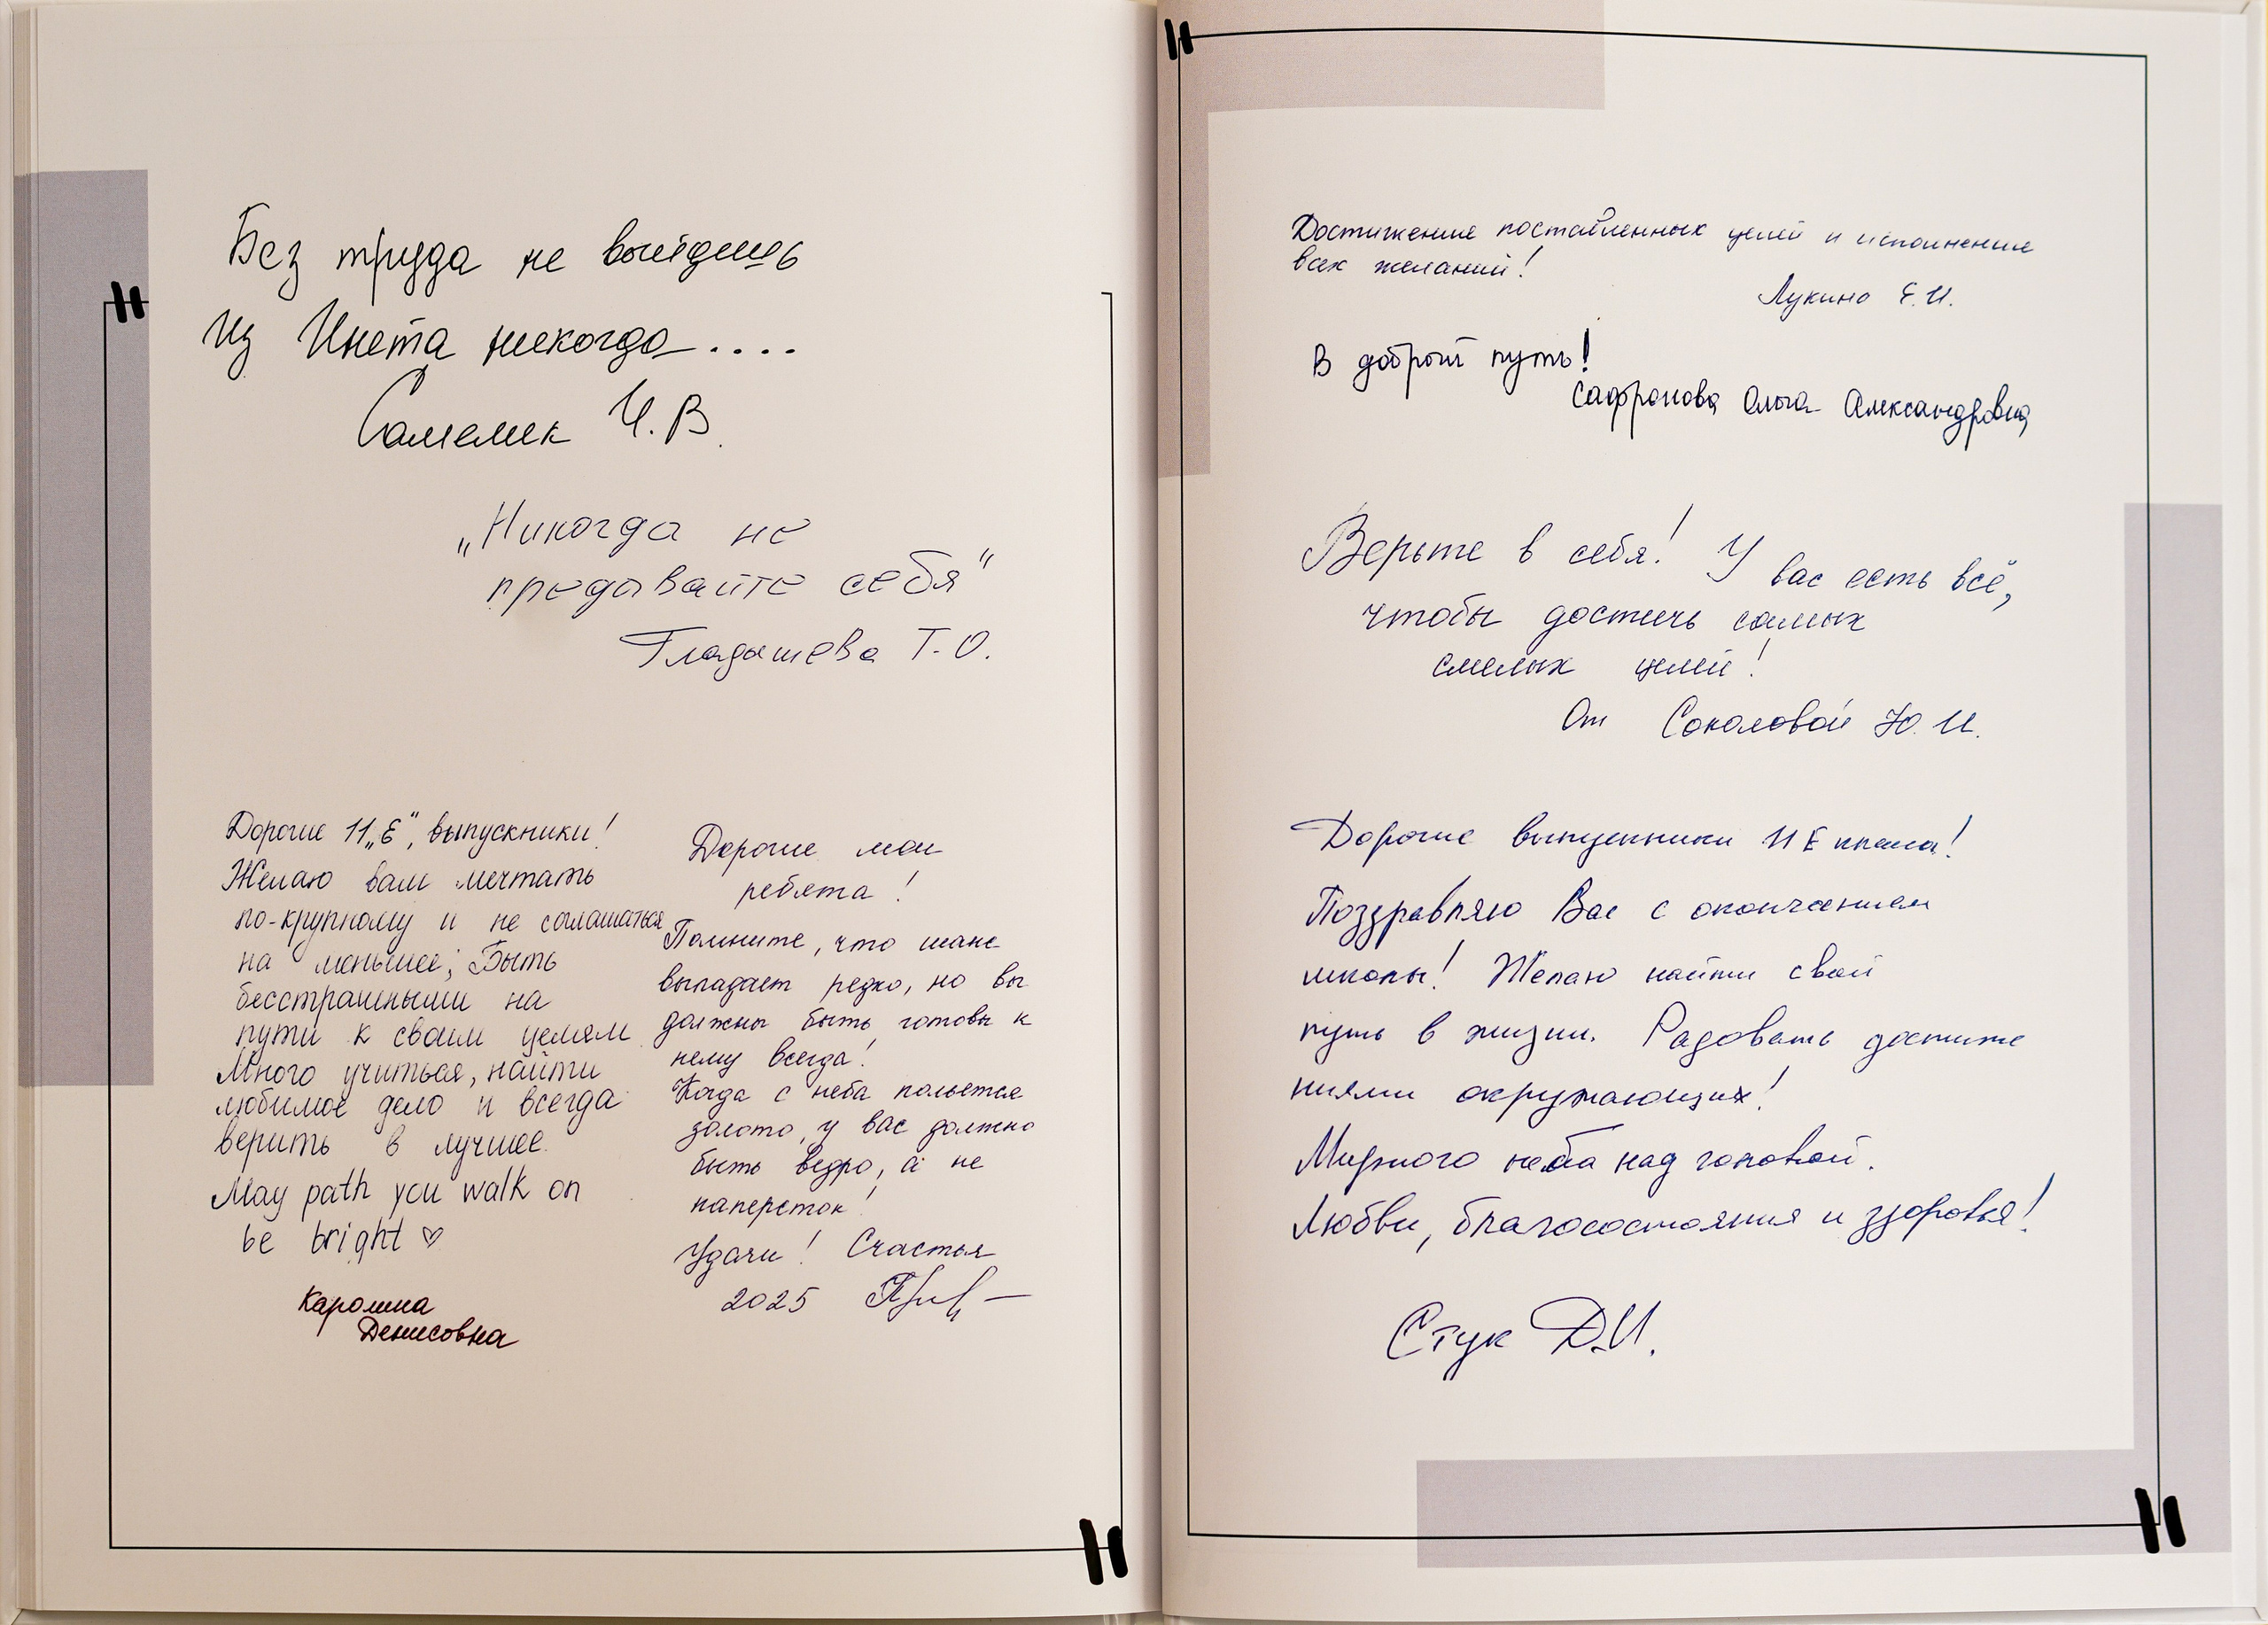 Без труда не выйдешь
Из Инета никогда....
Самелик Ч.В.
„Никогда не
предавайте себя"
Гладышева Т.О.
Дорогие 11„Е", выпускники!
Желаю вам мечтать
по-крупному и не соглашаться
на меньшее; Быть
бесстрашными на
пути к своим целям
Много учиться, найти
любимое дело и всегда
верить в лучшее.
May path you walk on
be bright ♡
Каролина
Денисовна
Дорогие мои
ребята!
Помните, что шанс
выпадает редко, но вы
должны быть готовы к
нему всегда!
Когда с неба польется
золото, у вас должно
быть ведро, а не
наперсток!
Удачи! Счастья
2025
Достижение поставленных целей и исполнение
всех желаний!
Лукина Е.И.
В добрый путь!
Сафронова Ольга Александровна
Верьте в себя! У вас есть всё,
чтобы достичь самых
смелых целей!
От Соколовой Ю.И.
Дорогие выпускники 11 Е класса!
Поздравляю Вас с окончанием
школы! Желаю найти свой
путь в жизни. Радовать достиже
ниями окружающих!
Мирного неба над головой.
Любви, благосостояния и здоровья!
Стук Д.И.